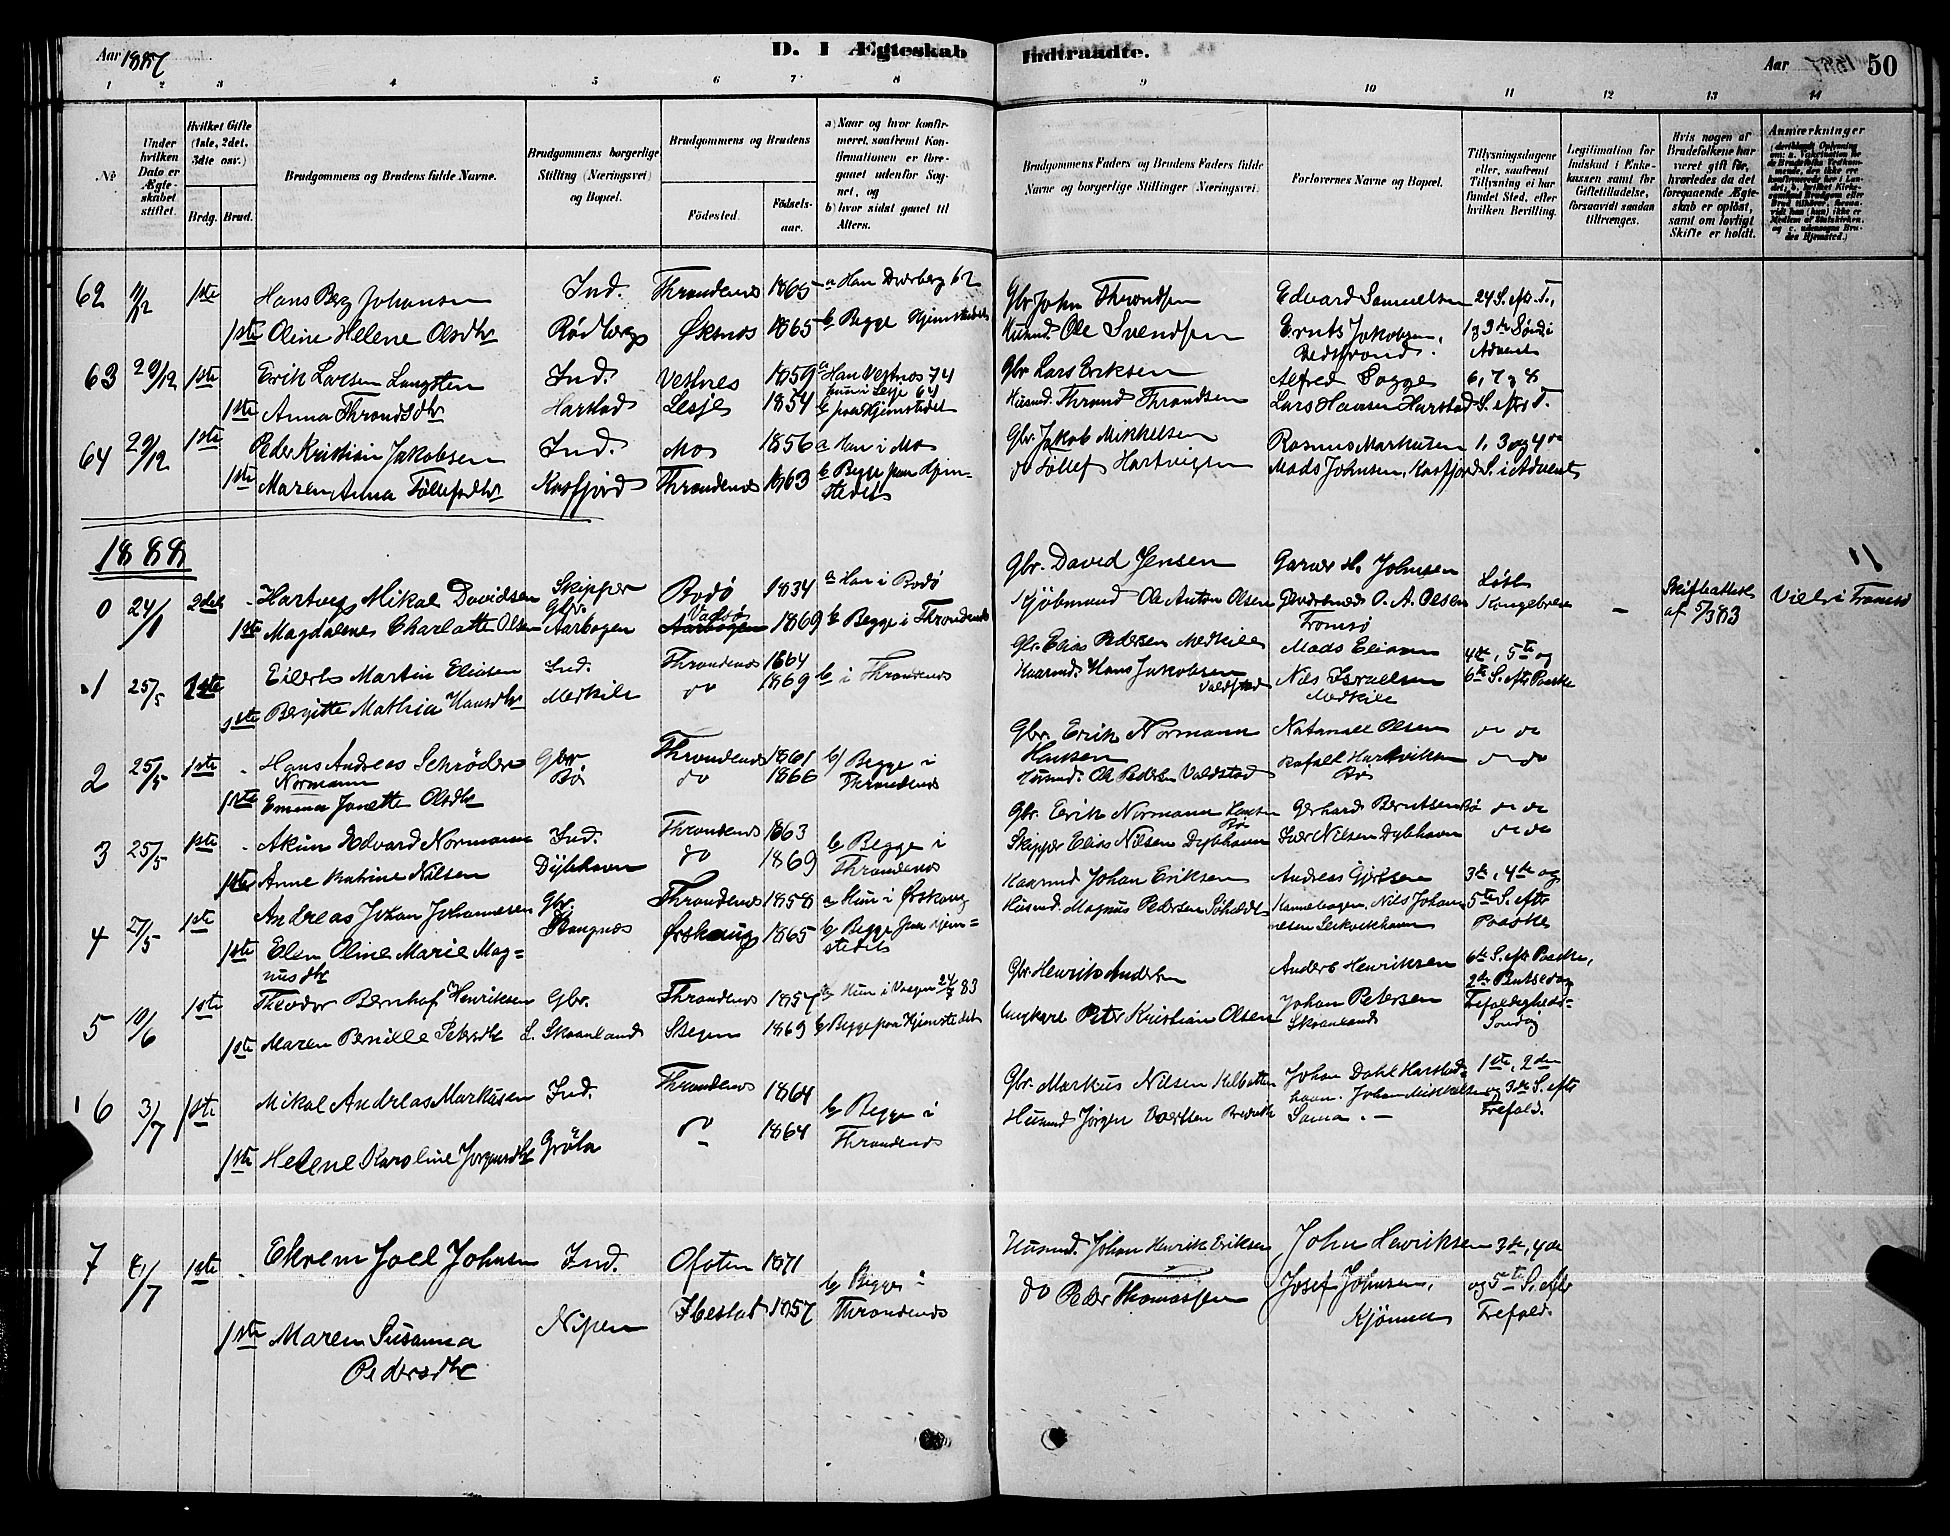 Aar 1887
D. I Ægteskab Indtraadte.
Aar 1887 50
1 2 3 4 5 6 7 8 9 10 11 12 13 14
No
Under hvilken Dato er Ægteskabet stiftet.
Hvilket Gifte (1ste, 2det, 3die osv.)
Brdg. Brud.
Brudgommens og Brudens fulde Navne.
Brudgommens borgerlige Stilling (Næringsvei) og Bopæl.
Brudgommens og Brudens
Fødested. Fødselsaar.
a) Naar og hvor konfirmeret, saafremt Konfirmationen er foregaaet udenfor Sognet, og
b) hvor sidst gaaet til Alters.
Brudgommens Faders og Brudens Faders fulde Navne og borgerlige Stillinger (Næringsvei.)
Forlovernes Navne og Bopæl.
Tillysningsdagene eller, saafremt Tillysning ei har fundet Sted, efter hvilken Bevilling.
Legitimation for Indskud i Enkekassen samt for Giftetilladelse, forsaavidt saadan tiltrænges.
Hvis nogen af Brudefolkene har været gift før, hvorledes da det foregaaende Ægteskab er opløst, samt om lovligt Skifte er holdt.
Anmærkninger
62 11/12 1ste Hans Berg Johansen Ind. Throndenes 1865 a Han Dverberg 62 Gbr John Throndsen Edvard Samuelsen 24 S. eft. T.,
1ste Oline Helene Olsdtr Rødberg Øksnes 1865 b Begge Hjemstedet Husmd. Ole Svendsen Ernts Jakobsen, 1 og 3de Sønd. i
Advent
63 29/12 1ste Erik Larsen Langsten Ind. Vestnes 1859 a Han Vestnes 74 Gbr Lars Eriksen Alfred Sogge 6, 7 og 8
hun i Lesje 64
1ste Anna Throndsdtr Harstad Lesje 1854 b paa Hjemstedet Husmd. Thrond Throndsen Lars Hansen Harstad S. eft T.
64 29/12 1ste Peder Kristian Jakobsen Ind. Mo 1856 a Han i Mo Gbr Jakob Mikkelsen Rasmus Markusen 1, 3 og 4de
1ste Maren Anna Tollefsdtr Kasfjord Throndenes 1863 b Begge paa Hjem- do Tollef Hartvigsen Mads Johnsen, Kasfjord S. i Advent
stedet
1888
0 24/1 2det Hartvig Mikal Davidsen Skipper Gbr. Bodø 1834 a Han i Bodø Gbr. David Jensen Garver H. Johnsen Løst Skifteattest Viet i Tromsø
1ste Magdalenes Charlotte Olsen Aarbogen Vadsø Aarbogen 1869 b Begge i Throndenes Kjøbmand Ole Anton Olsen O. A. Olsen Kongebrev - af 5/3 83
Tromsø
1 25/5 1ste Eilert Martin Eliasen Ind. Throndenes 1864 b i Throndenes Gbr. Elias Pedersen Medkile Mads Eliasen 4de, 5te og
1ste Bergitte Mathea Hansdtr Medkile do 1869 Kaarmd. Hans Jakobsen Valdstad Nils Israelsen 6te S. eft Paaske
Medkile
2 25/5 1ste Hans Andreas Schrøder Gbr. Throndenes 1861 b/ Begge i Gbr. Erik Normann Natanael Olsen do do
Normann Bø do 1866 Throndenes Hansen Rafael Hartviksen do do
1ste Emma Janette Olsdtr Husmd. Ole Pedersen Valdstad Bø
3 25/5 1ste Akim Edvard Normann Ind. Throndenes 1863 b Begge i Gbr. Erik Normann Hansen Bø Gerhard Berntsen Bø do do
1ste Anne Katrine Nilsen Dybhavn do 1869 Throndenes Skipper Elias Nilsen Dybhavn Iver Nilsen Dybhavn do do
4 27/5 1ste Andreas Johan Johannesen Gbr. Throndenes 1858 a Hun i Ørskoug Kaarmd Johan Eriksen Andreas Gjertsen 3de, 4de og
1ste Elen Oline Marie Mag= Stangnes Ørskoug 1865 b Begge paa Hjem= Husmd. Magnus Pedersen Kannebogen, Nils Johan- 5te S. efter
nusdtr stedet nesen Paaske
5 10/6 1ste Theodor Bernhof Henriksen Gbr. Throndenes 1857 a Hun i Vaagen 24/7 83 Gbr Henrik Andersen Anders Henriksen 6te S. eft. Paaske,
2de Pintsedag
1ste Maren Pernille Petersdtr L. Skaanland Steigen 1869 b Begge paa Hjemstedet Ungkarl Peter Kristian Olsen Johan Petersen Trefoldigheds-
Skaanland Søndag
6 3/7 1ste Mikal Andreas Markusen Ind. Throndenes 1864 b Begge i Gbr. Markus Nilsen Kilbotten Johan Dahl Harstad- 1ste, 2den
1ste Helene Karoline Jørgensdtr Grøtø do 1864 Throndenes Husmd Jørgen havn. Johan Mikkelsen og 3de S. eft
Sama. - Trefold.
7 8/7 1ste Efrem Joel Johnsen Ind. Ofoten 1871 b Begge i Husmd. Johan Henrik Eriksen John Henriksen 3de, 4de
1ste Maren Susanna Nipen Ibestad 1857 Throndenes do Peder Thomassen Josef Johnsen, og 5te S. eft
Pedersdtr Kjønna Trefold.